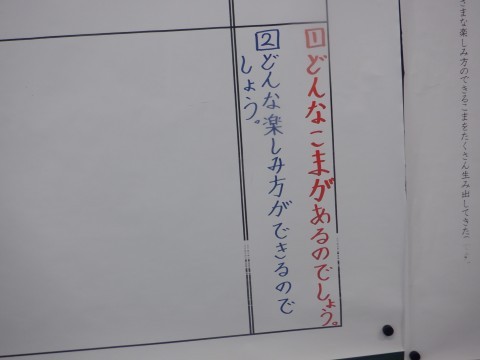 さまな楽しみ方のできるこまをたくさん生み出してきた
1どんなこまがあるのでしょう。
2どんな楽しみ方ができるので
しょう。